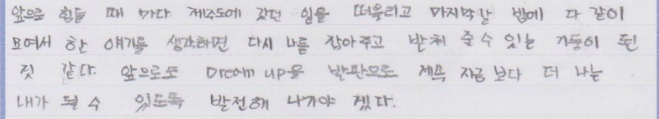 앞으로 힘들 때 마다 제주도에 갔던 일을 떠올리고 마지막날 밤에 다 같이
모여서 한 얘기를 생각하면 다시 나를 잡아주고 받쳐 줄 수 있는 기둥이 된
것 같다. 앞으로도 Dream up을 발판으로 계속 지금 보다 더 나는
내가 될 수 있도록 발전해 나가야 겠다.